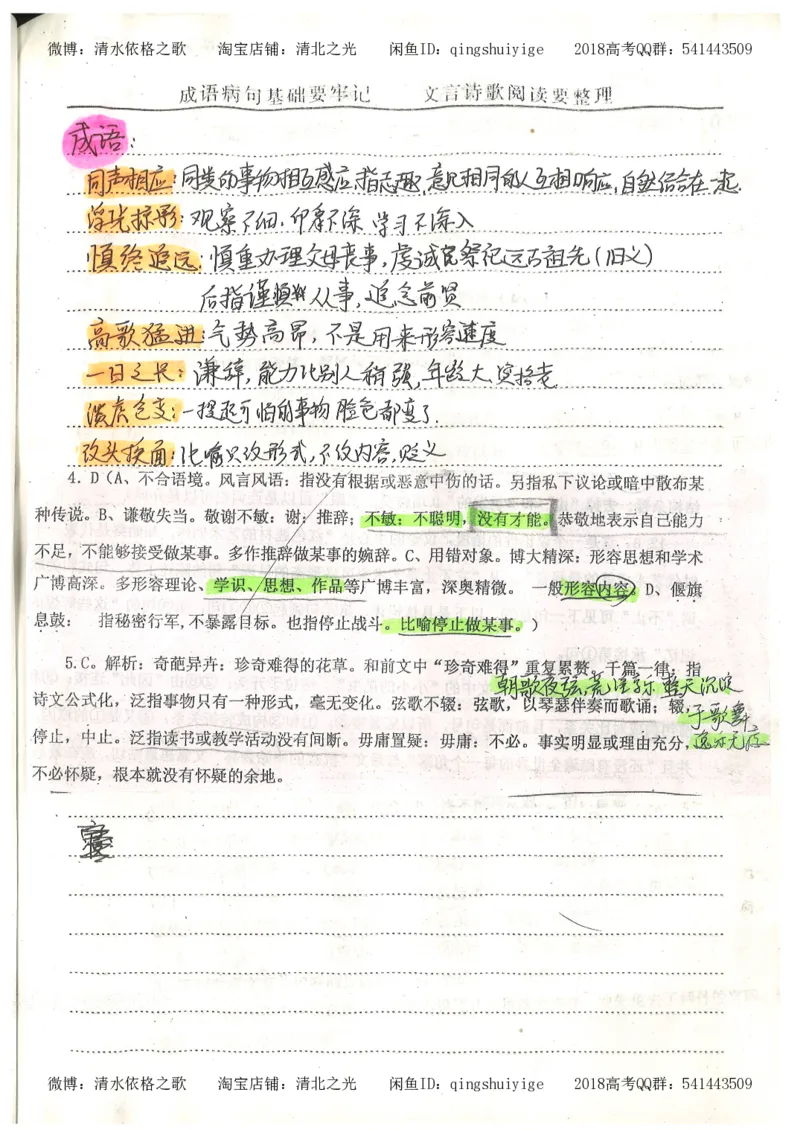 微博：清水依格之歌 淘宝店铺：清北之光 闲鱼ID：qingshuiyige 2018高考QQ群：541443509
成语病句基础要牢记 文言诗歌阅读要整理
成语：
同声相应：同类的事物相互感应，指志趣、意见相同的人互相响应，自然结合在一起.
浮光掠影：观察不细，印象不深 学习不深入
慎终追远：慎重办理父母丧事，虔诚地祭祀远古祖先（旧义）
后指谨慎从事，追念前贤
高歌猛进：气势高昂，不是用来形容速度
一日之长：谦辞，能力比别人稍强，年龄大
谈虎色变：一提起可怕的事物脸色都变了.
改头换面：比喻只改形式，不改内容，贬义
4. D（A、不合语境。风言风语：指没有根据或恶意中伤的话。另指私下议论或暗中散布某
种传说。B、谦敬失当。敬谢不敏：谢：推辞；不敏：不聪明，没有才能。恭敬地表示自己能力
不足，不能够接受做某事。多作推辞做某事的婉辞。C、用错对象。博大精深：形容思想和学术
广博高深。多形容理论、学识、思想、作品等广博丰富，深奥精微。 一般形容内容。D、偃旗
息鼓： 指秘密行军，不暴露目标。也指停止战斗。比喻停止做某事。）
5.C。解析：奇葩异卉：珍奇难得的花草。和前文中“珍奇难得”重复累赘。千篇一律：指
朝歌夜弦：荒淫享乐 整天沉迷
诗文公式化，泛指事物只有一种形式，毫无变化。弦歌不辍：弦歌，以琴瑟伴奏而歌诵；辍，
于歌舞
停止，中止。泛指读书或教学活动没有间断。毋庸置疑：毋庸：不必。事实明显或理由充分，
逸亦无度
不必怀疑，根本就没有怀疑的余地。
微博：清水依格之歌 淘宝店铺：清北之光 闲鱼ID：qingshuiyige 2018高考QQ群：541443509